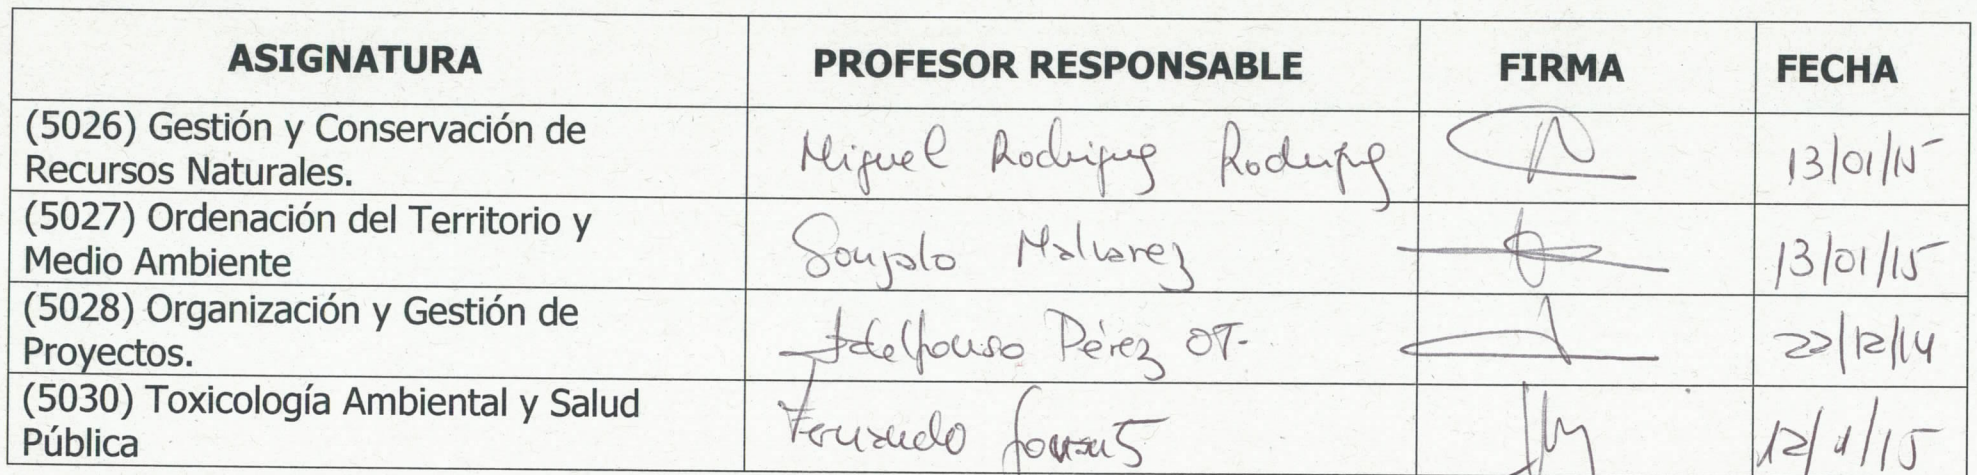 ASIGNATURA PROFESOR RESPONSABLE FIRMA FECHA
(5026) Gestión y Conservación de
Recursos Naturales.
Miguel Rodríguez Rodríguez 13/01/15
(5027) Ordenación del Territorio y
Medio Ambiente
Gonzalo Malvarez 13/01/15
(5028) Organización y Gestión de
Proyectos.
Ildefonso Pérez OT- 22/12/14
(5030) Toxicología Ambiental y Salud
Pública
Fernando 12/1/15